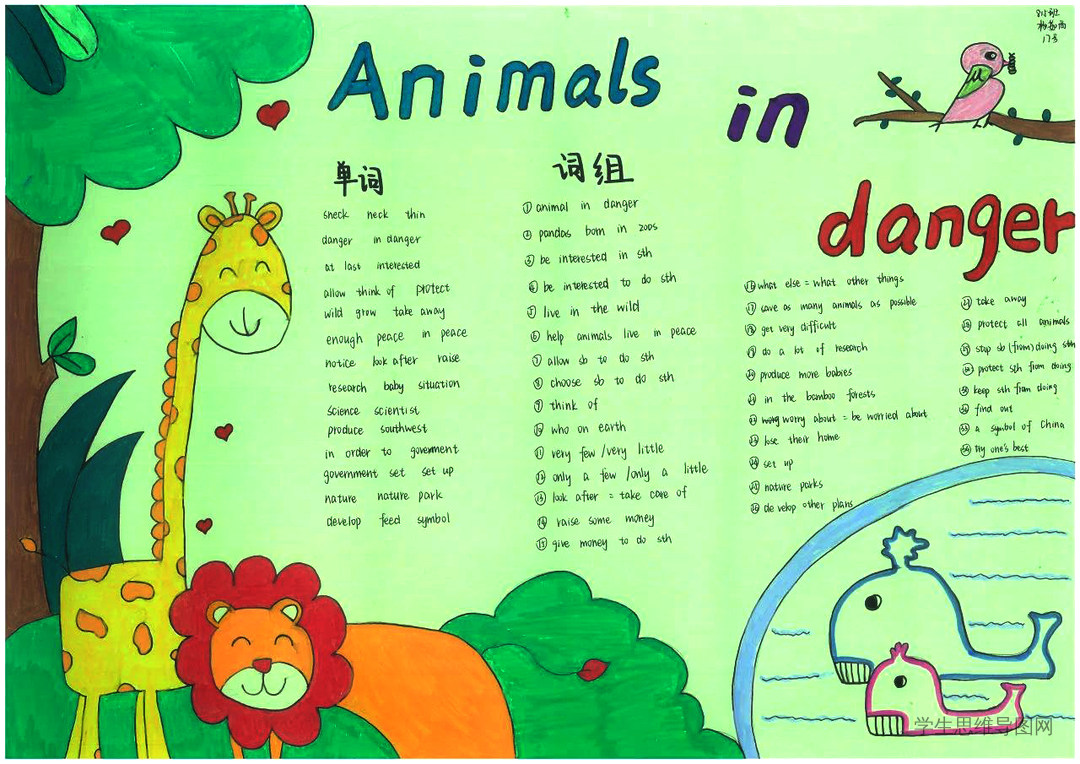 Animals
in
danger
单词
sneck neck thin
danger in danger
at last interested
allow think of protect
wild grow take away
enough peace in peace
notice look after raise
research baby situation
science scientist
produce southwest
in order to government
government set set up
nature nature park
develop feed symbol
词组
① animal in danger
② pandas born in 2005
③ be interested in sth
④ be interested to do sth
⑤ live in the wild
⑥ help animals live in peace
⑦ allow sb to do sth
⑧ choose sb to do sth
⑨ think of
⑩ who on earth
⑪ very few / very little
⑫ only a few / only a little
⑬ look after = take care of
⑭ raise some money
⑮ give money to do sth
⑯ what else = what other things
⑰ save as many animals as possible
⑱ get very difficult
⑲ do a lot of research
⑳ produce more babies
㉑ in the bamboo forests
㉒ worry about = be worried about
㉓ lose their home
㉔ set up
㉕ nature parks
㉖ develop other plans
㉗ take away
㉘ protect all animals
㉙ stop sb (from) doing sth
㉚ protect sth from doing
㉛ keep sth from doing
㉜ find out
㉝ a symbol of China
㉞ try one's best
17号
学生思维导图网